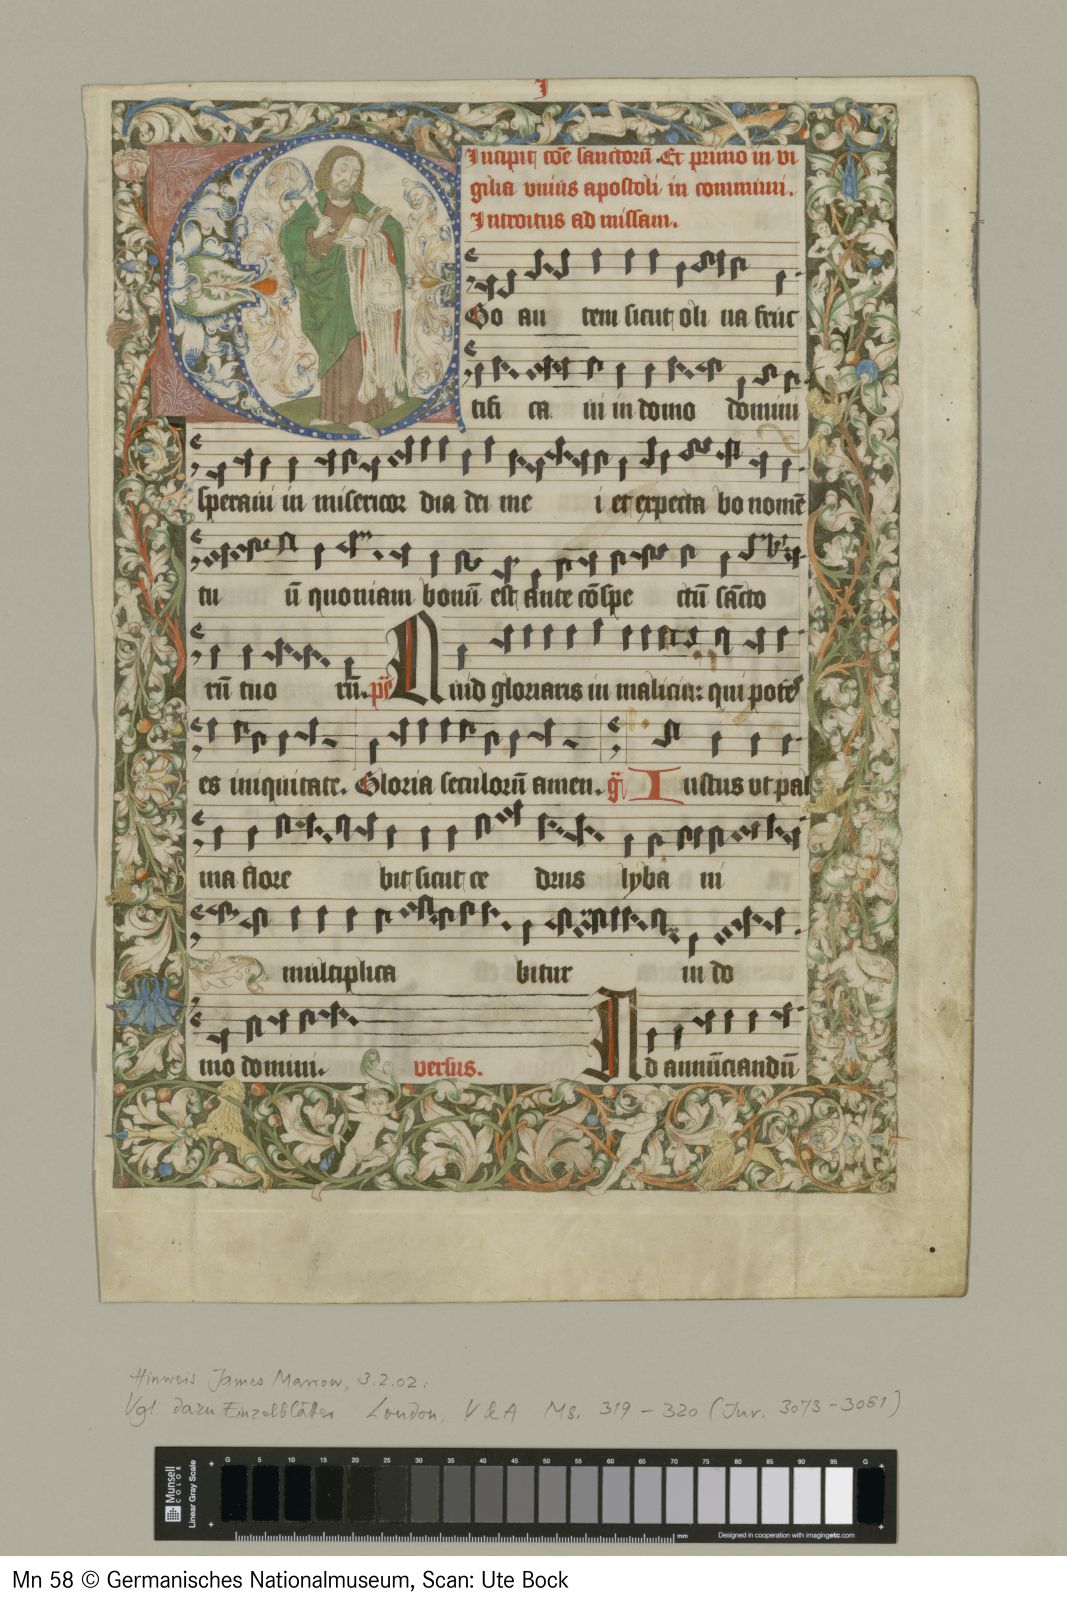 I
Incipit cōe sanctorū. Et primo in vi
gilia vnius apostoli in communi.
Introitus ad missam.
Go au tem sicut oli ua fruc
tifi ca ui in domo domini
speraui in misericor dia dei me i et expecta bo nomē
tu ū quoniam bonū est ante cōspe ctū sācto
rū tuo rū. ps̄ Quid gloriaris in malicia: qui potēs
es iniquitate. Gloria seculorū amen. gͬ Iustus vt pal
ma flore bit sicut ce drus lyba ni
multiplica bitur in do
mo domini. versus. Ad annūciandū
Hinweis James Marrow, 3.2.02:
Vgl. dazu Einzelblätter London, V & A Ms. 319 – 320 (Inv. 3073 – 3081)
Munsell
COLOR
Linear Gray Scale
G 5 10 15 20 25 30 35 40 45 50 55 60 65 70 75 80 85 90 95 G
mm
Designed in cooperation with imagingetc.com
Mn 58 © Germanisches Nationalmuseum, Scan: Ute Bock